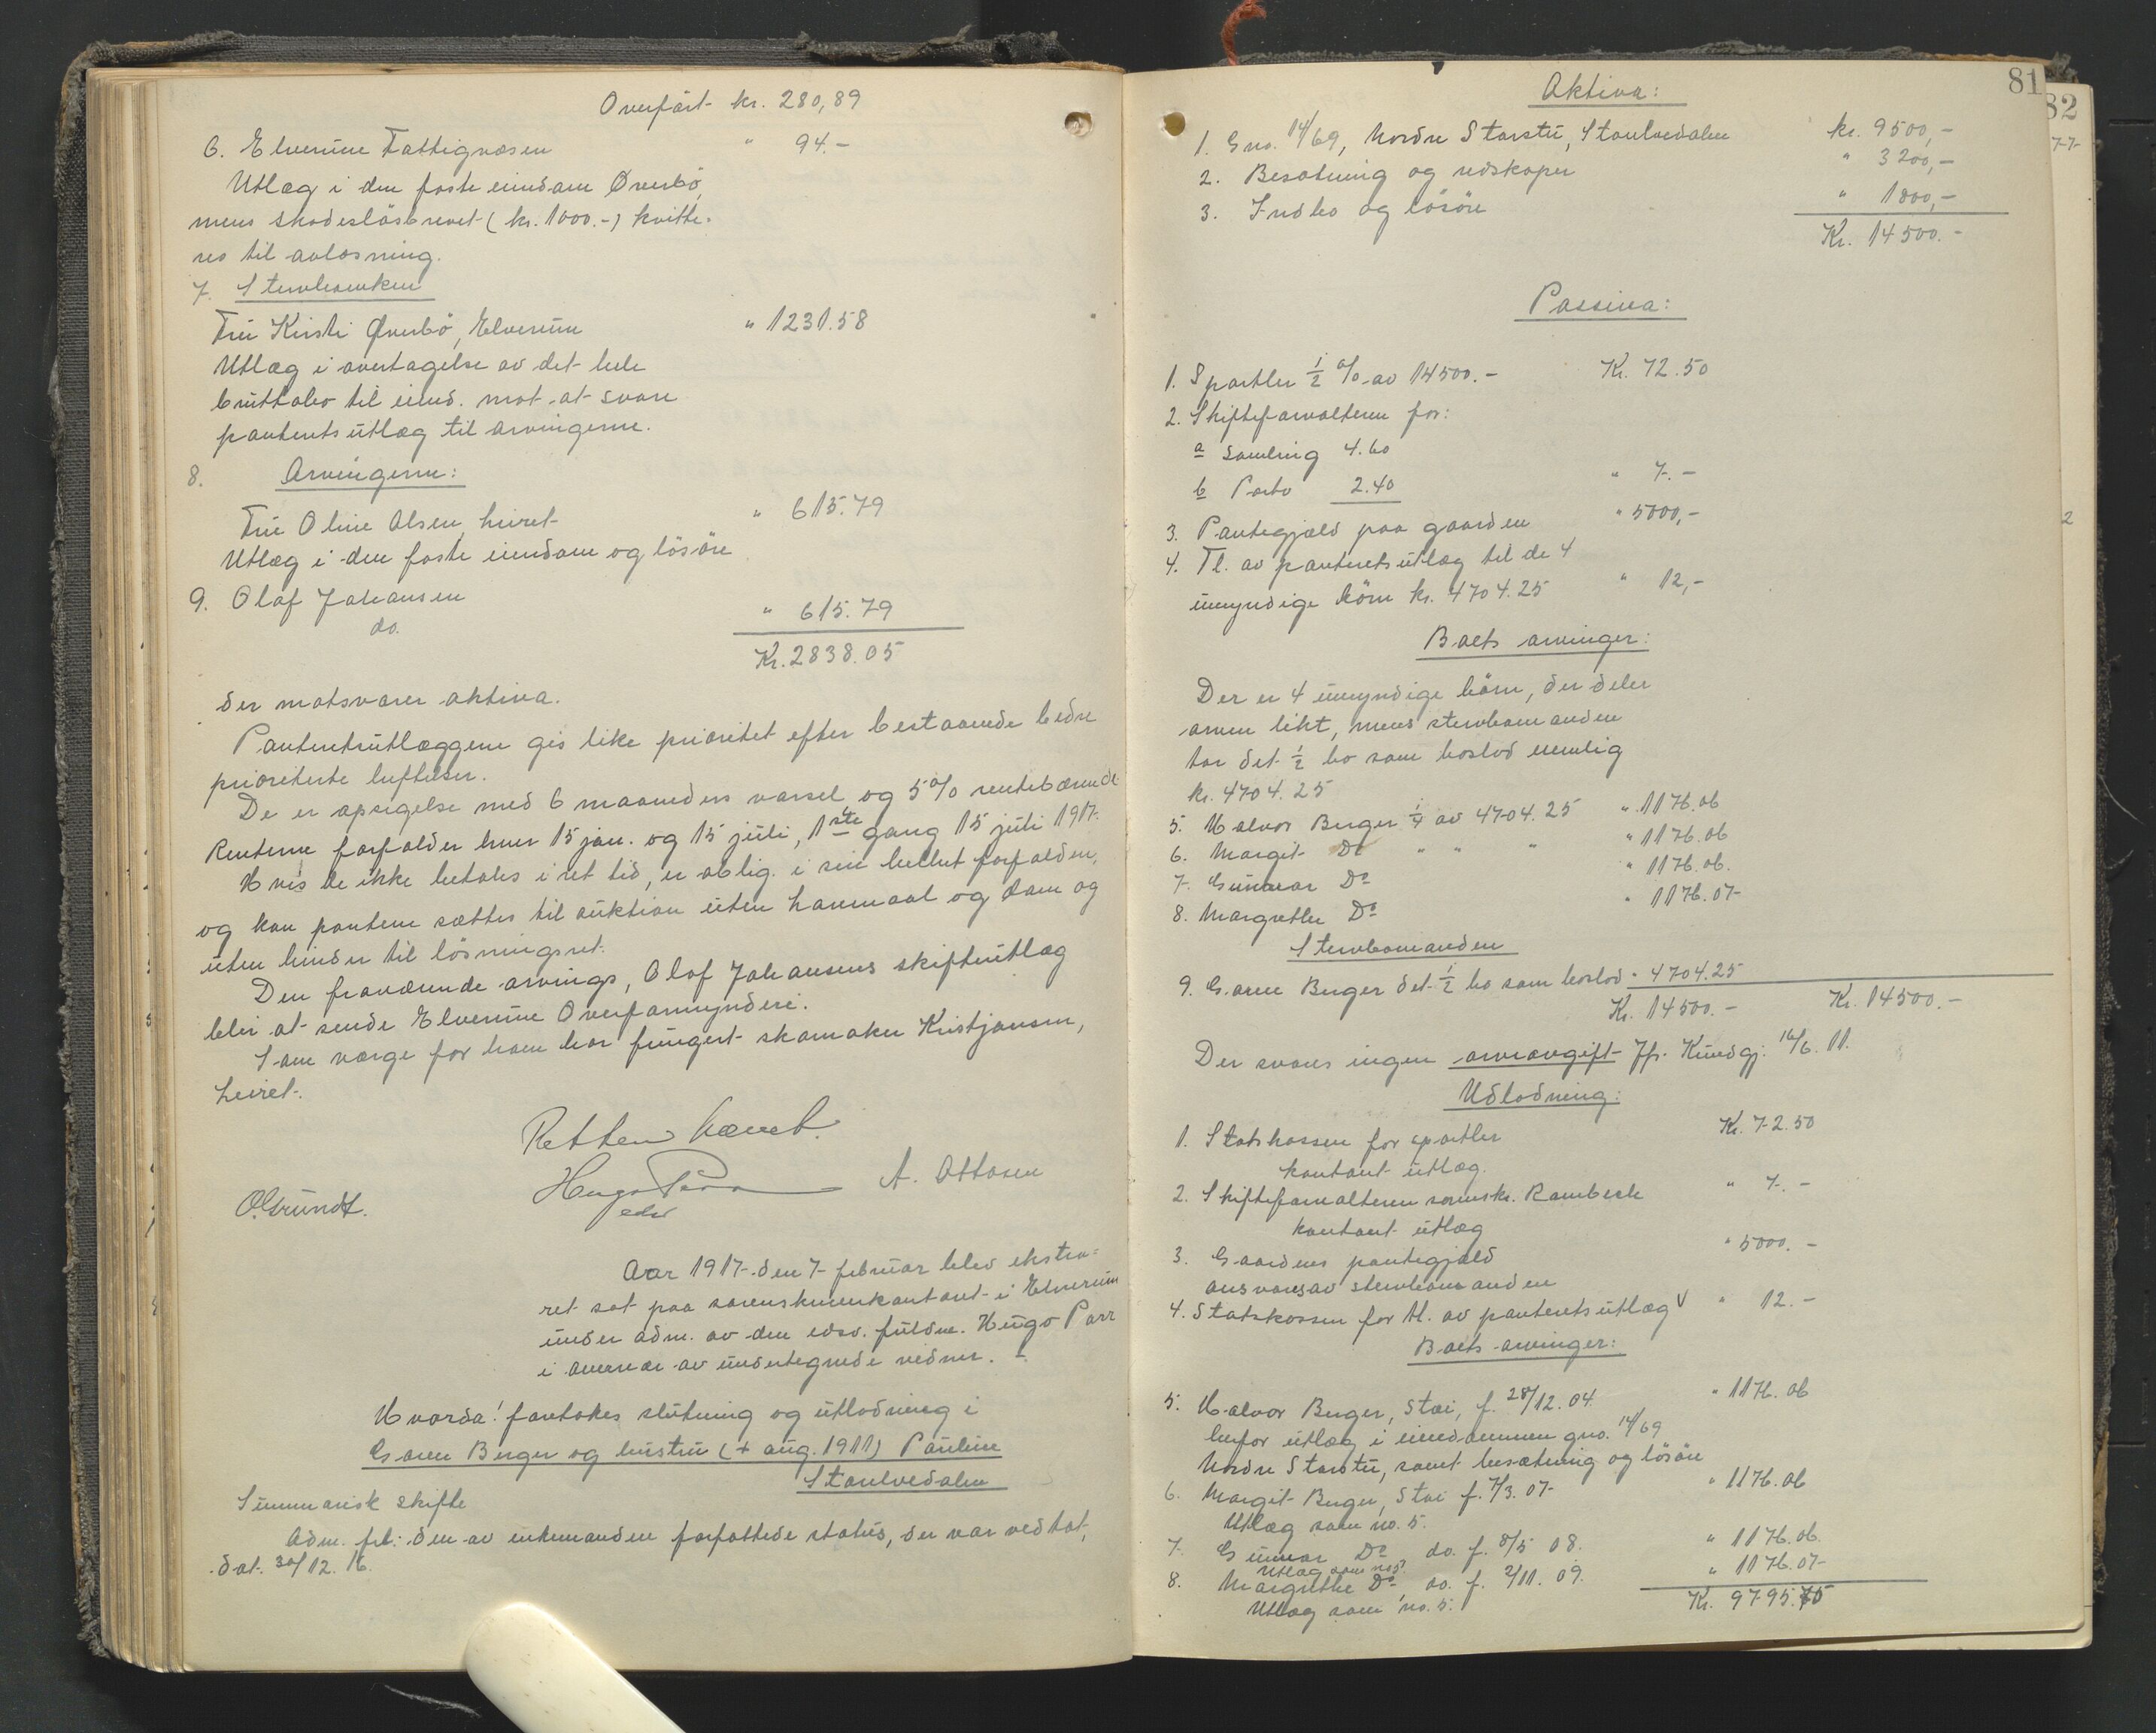 Overført kr. 280,89
6. Elverum Fattigvæsen " 94.-
Utlæg i den faste eiendom Øverbö,
mens skadeslösbrevet (kr. 1000.-) kvitte-
res til avlæsning.
7. Stervboenken
Fru Kirsti Øverbö, Elverum " 1231.58
Utlæg i overtagelse av det hele
bruttobo til eiend. mot at svare
panteretsutlæg til arvingerne.
8. Arvingerne:
Fru Oline Olsen, Leiret " 615.79
Utlæg i den faste eiendom og lösöre
9. Olaf Johansen " 615.79
do.
Kr. 2838.05
der motsvarer aktiva.
Panteretsutlæggene gis like prioritet efter bestaaende bedre
prioriterte heftelser.
De er opsigelse med 6 maaneders varsel og 5% rentebærende
Renterne forfalder hver 15 jan. og 15 juli, 1ste gang 15 juli 1917.
Hvis de ikke betales i ret tid, er oblig. i sin helhet forfalden,
og kan pantene sættes til auktion uten Lovmaal og Dom og
uten hinder til lösningsret.
Den fraværende arvings, Olaf Johansens skifteutlæg
blir at sende Elverum Overformynderi.
Som værge for ham har fungert skomaker Kristjansen,
Leiret.
Retten hævet.
Hugo Parr
edsv
A. Ottosen
O. Grundt.
Aar 1917 den 7 februar blev ekstra-
ret sat paa sorenskriverkontoret i Elverum
under adm. av den edsv. fuldm. Hugo Parr
i overvær av undertegnede vidner. -
Hvorda! foretokes slutning og utlodning i
Garen Berger og hustru (+ aug. 1911) Pauline
Staulvedalen
Summarisk skifte
Adm. frl: den av enkemanden forfattede status, der var vedtat,
dat. 30/12. 16.
81
82
Aktiva:
1. Gno. 14/69, Nordre Starstu, Staulvedalen kr. 9500,-
2. Besætning og redskaper " 3200,-
3. Indbo og lösöre " 1800,-
Kr. 14500.-
Passiva:
1. Sportler 1/2 % av 14500.- Kr. 72.50
2. Skifteforvalteren for:
a Samling 4.60
b Porto 2.40 " 7.-
3. Pantegjæld paa gaarden " 5000,-
4. Tl. av panteretsutlæg til de 4
umyndige börn kr. 4704.25 " 12,-
Boets arvinger:
Der er 4 umyndige börn, der deler
arven likt, mens stervbomanden
tar det 1/2 bo som boslod nemlig
kr. 4704.25
5. Halvor Berger 1/4 av 4704.25 " 1176.06
6. Margit Do " " " " 1176.06
7. Gunnar Do " 1176.06.
8. Margrethe Do " 1176.07
Stervbomanden
9. Garen Berger det 1/2 bo som boslod " 4704.25
Kr. 14500.- Kr. 14500.-
Der svares ingen arveavgift Jfr. Kundgj. 16/6. 11.
Udlodning:
1. Statskassen for sportler Kr. 72.50
kontant utlæg.
2. Skifteforvalteren sorenskr. Rambech " 7.-
kontant utlæg
3. Gaardens pantegjæld " 5000.-
ansvares av stervbomanden
4. Statskassen for tl. av panteretsutlæg " 12.-
Boets arvinger:
5. Halvor Berger, Stai, f. 28/12. 04. " 1176.06
herfor utlæg i eiendommen gno. 14/69
Nordre Starstu, samt besætning og lösöre
6. Margit Berger, Stai f. 7/3. 07 " 1176.06
Utlæg som no. 5.
7. Gunnar Do do. f. 8/5 08. " 1176.06.
Utlæg som no 5.
8. Margrethe Do do. f. 2/11. 09. " 1176.07
Utlæg som no. 5.
Kr. 9795.75